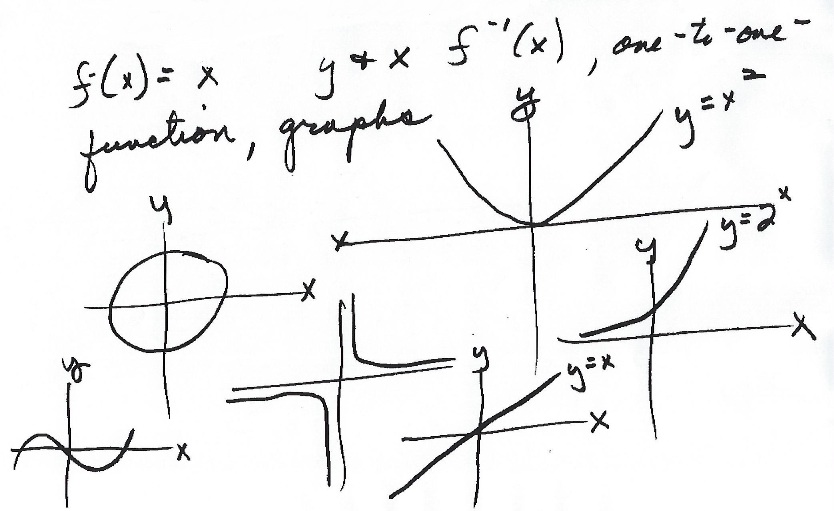 f(x) = x y + x f⁻¹(x), one-to-one-
function, graphs
y
y = x²
x
y = 2ˣ
y
x
y
x
y
x
y
y = x
x